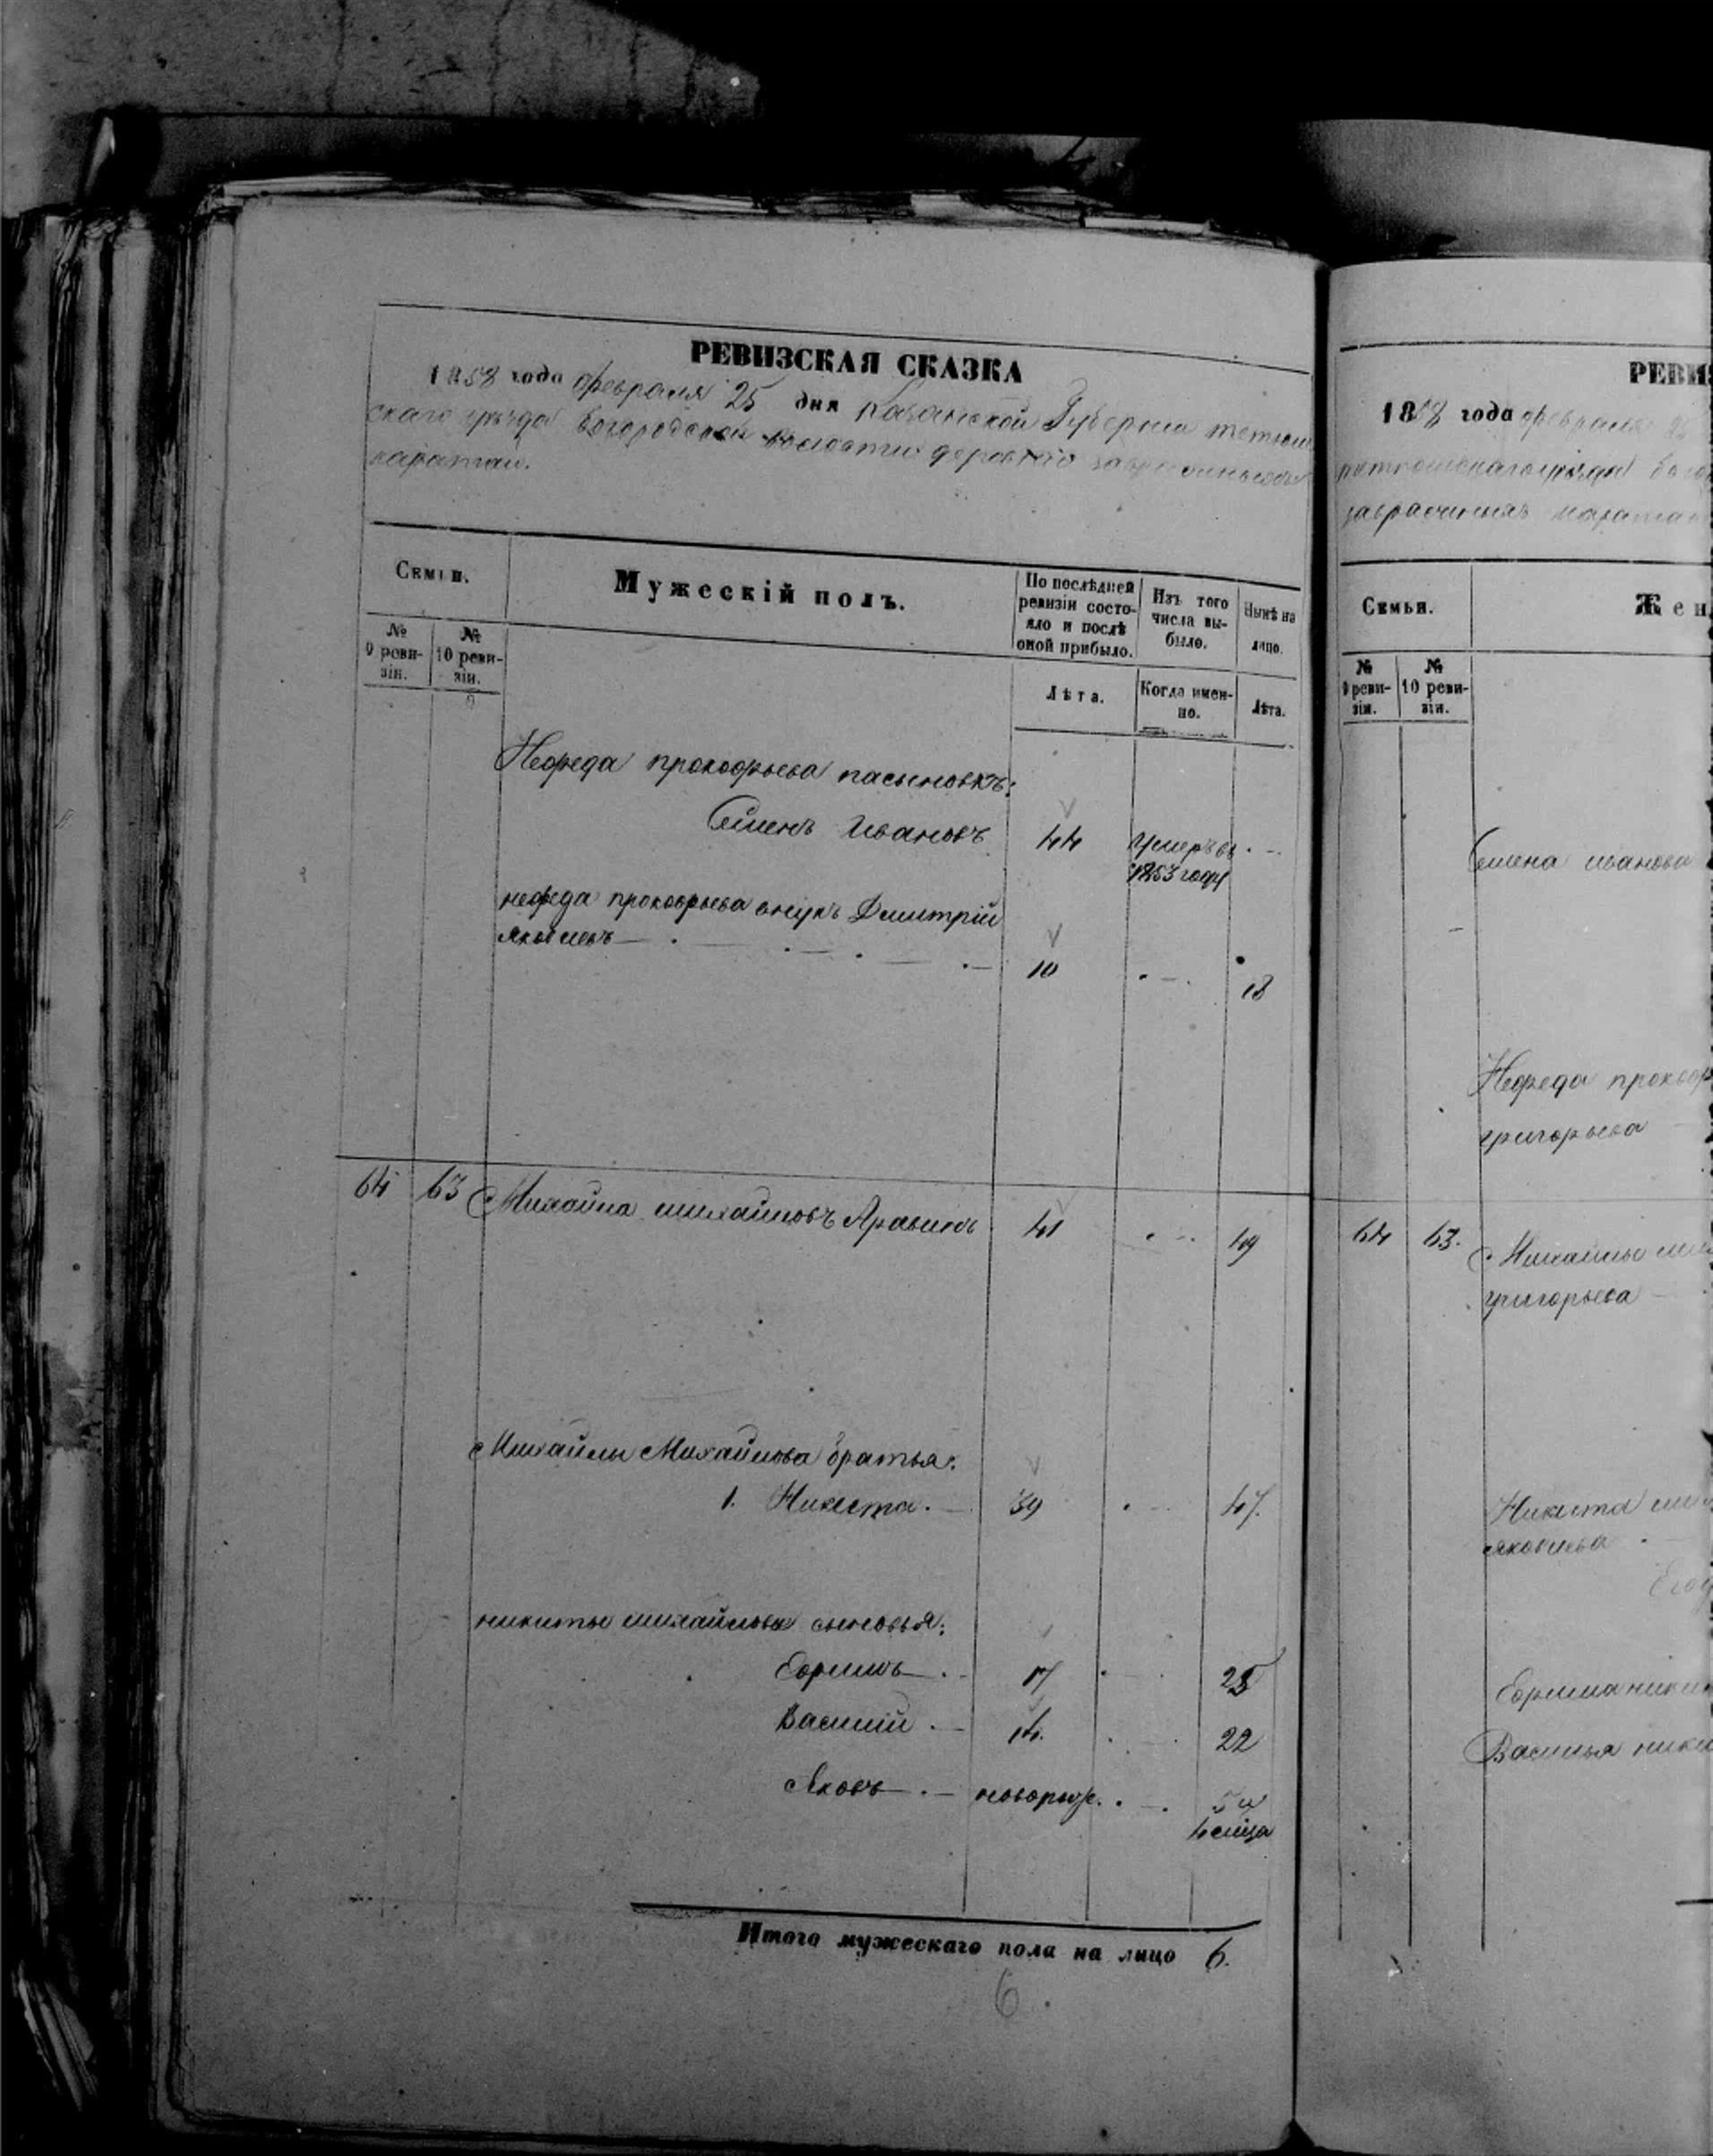 РЕВИЗСКАЯ СКАЗКА
1858 года февраля 25 дня Казанской Губернии тетюш
скаго уезда Богородской волости деревни
каратаи.
Семьи.
№ 9 ревизіи.
№ 10 ревизіи.
Мужескій полъ.
По послѣдней ревизіи состояло и послѣ оной прибыло.
Изъ того числа выбыло.
Нынѣ на лицо.
Лѣта.
Когда именно.
Лѣта.
Нефеда прокофьева пасынокъ:
Семенъ Ивановъ 44 умеръ въ
1853 году
нефеда прокофьева внукъ Дмитрій
Яковлевъ 10 18
64 63 Михайла михайловъ 41 49
Михайлы Михайлова братья:
1. Никита. 39 47.
никиты михайлова сыновья:
Ефимъ 17 25
Василій 14. 22
Яковъ новорож. 5 и
4 мѣсца
Итого мужескаго пола на лицо 6.
6.
РЕВИЗ
1858 года февраля 25
уезда
каратаи
Семьи.
№ 9 ревизіи.
№ 10 ревизіи.
Жен
Семена иванова
Нефеда прокоф
григорьева
64 63. Михайлы ми
григорьева
Никита ми
яковлева
Ефима ники
Василья ники